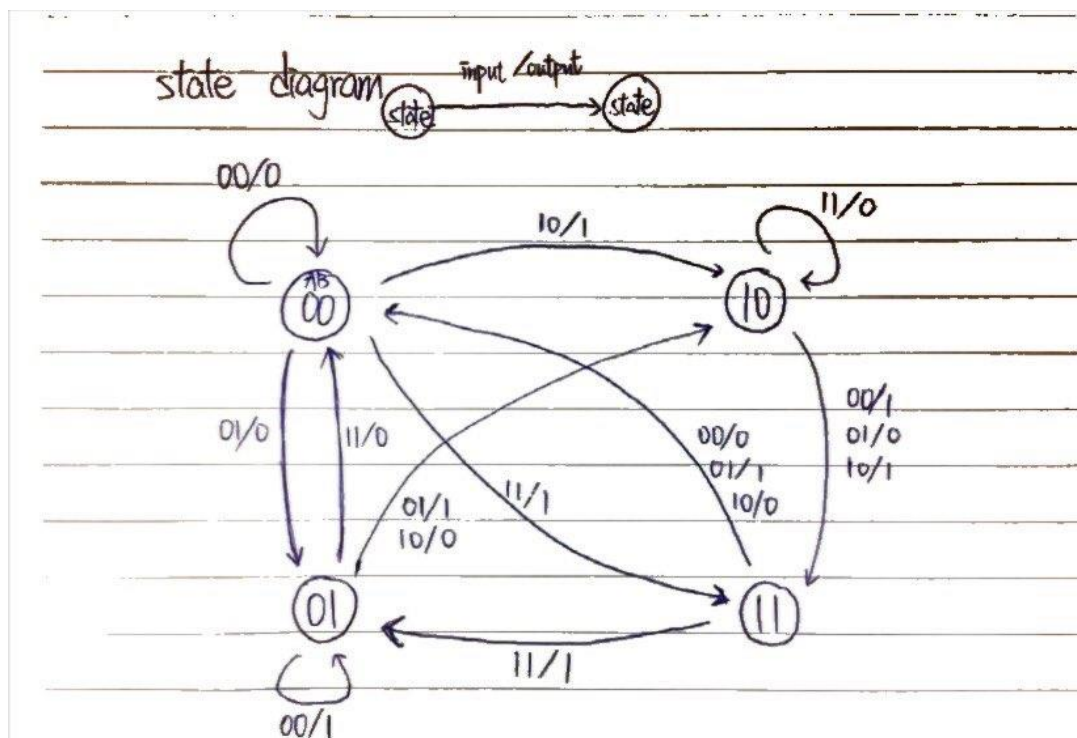 state diagram
input / output
state
state
00/0
10/1
11/0
AB
00
10
01/0
11/0
01/1
10/0
11/1
00/0
01/1
10/0
00/1
01/0
10/1
01
11
11/1
00/1